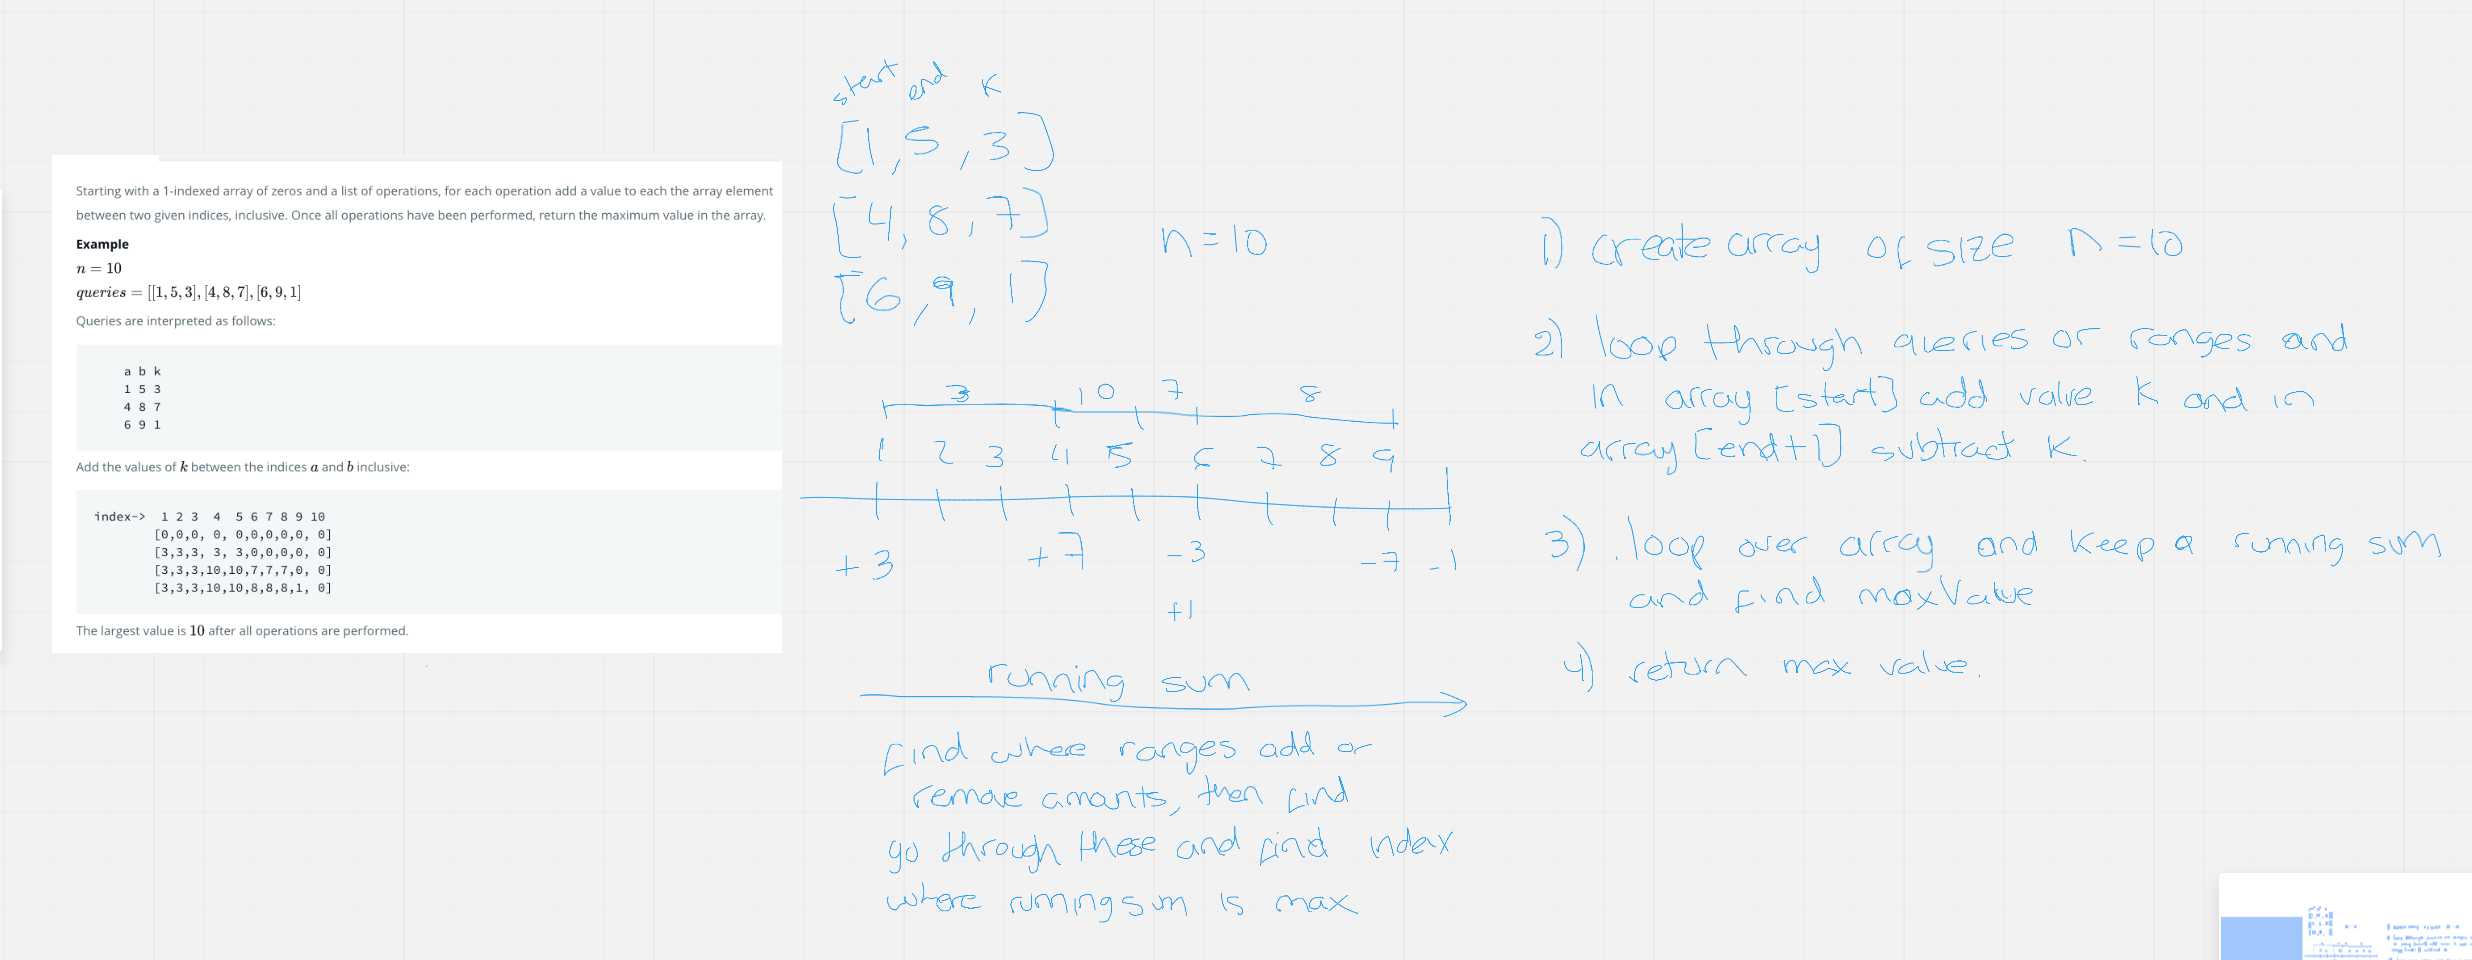 Starting with a 1-indexed array of zeros and a list of operations, for each operation add a value to each the array element
between two given indices, inclusive. Once all operations have been performed, return the maximum value in the array.
Example
n = 10
queries = [[1, 5, 3], [4, 8, 7], [6, 9, 1]
Queries are interpreted as follows:
a b k
1 5 3
4 8 7
6 9 1
Add the values of k between the indices a and b inclusive:
index-> 1 2 3 4 5 6 7 8 9 10
[0,0,0, 0, 0,0,0,0,0, 0]
[3,3,3, 3, 3,0,0,0,0, 0]
[3,3,3,10,10,7,7,7,0, 0]
[3,3,3,10,10,8,8,8,1, 0]
The largest value is 10 after all operations are performed.
start end K
[1,5,3]
[4,8,7]
[6,9,1]
n=10
3 10 7 8
1 2 3 4 5 6 7 8 9
+3 +7 -3 -7 -1
+1
running sum
find whee ranges add or
remove amonts, then find
go through these and find index
where running sum is max
1) create array of size n=10
2) loop through queries or ranges and
in array [start] add value K and in
array [end+1] subtract K.
3) .loop over array and keep a running sum
and find maxValue
4) return max value.